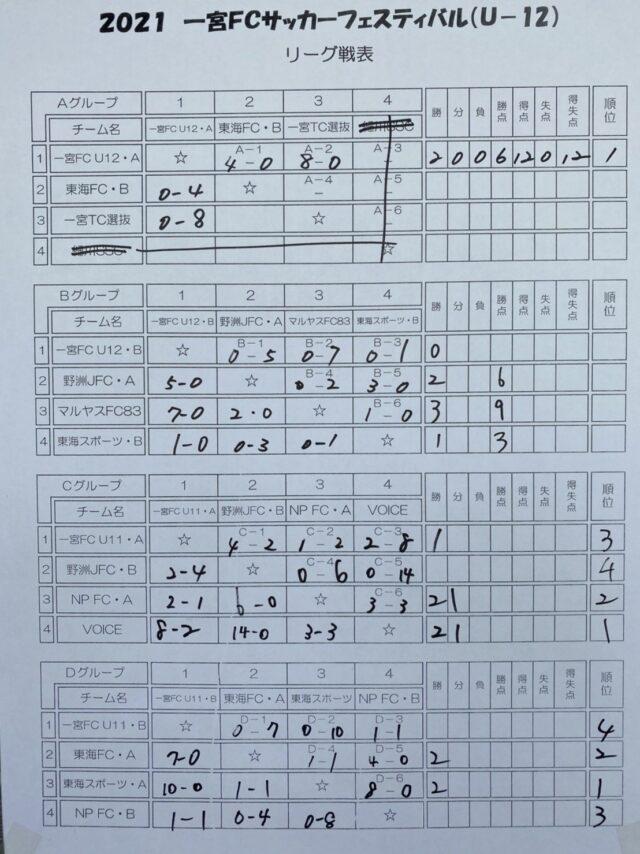 2021 一宮FCサッカーフェスティバル(U-12)
リーグ戦表
Aグループ 1 2 3 4 勝 分 負 勝点 得点 失点 得失点 順位
チーム名 一宮FC U12・A 東海FC・B 一宮TC選抜
1 一宮FC U12・A ☆ A-1 4-0 A-2 8-0 A-3 2 0 0 6 12 0 12 1
2 東海FC・B 0-4 ☆ A-4 - A-5 -
3 一宮TC選抜 0-8 ☆ A-6 -
4 ☆
Bグループ 1 2 3 4 勝 分 負 勝点 得点 失点 得失点 順位
チーム名 一宮FC U12・B 野洲JFC・A マルヤスFC83 東海スポーツ・B
1 一宮FC U12・B ☆ B-1 0-5 B-2 0-7 B-3 0-1 0
2 野洲JFC・A 5-0 ☆ B-4 0-2 B-5 3-0 2 6
3 マルヤスFC83 7-0 2-0 ☆ B-6 1-0 3 9
4 東海スポーツ・B 1-0 0-3 0-1 ☆ 1 3
Cグループ 1 2 3 4 勝 分 負 勝点 得点 失点 得失点 順位
チーム名 一宮FC U11・A 野洲JFC・B NP FC・A VOICE
1 一宮FC U11・A ☆ C-1 4-2 C-2 1-2 C-3 2-8 1 3
2 野洲JFC・B 2-4 ☆ C-4 0-6 C-5 0-14 4
3 NP FC・A 2-1 6-0 ☆ C-6 3-3 2 1 2
4 VOICE 8-2 14-0 3-3 ☆ 2 1 1
Dグループ 1 2 3 4 勝 分 負 勝点 得点 失点 得失点 順位
チーム名 一宮FC U11・B 東海FC・A 東海スポーツ NP FC・B
1 一宮FC U11・B ☆ D-1 0-7 D-2 0-10 D-3 1-1 4
2 東海FC・A 7-0 ☆ D-4 1-1 D-5 4-0 2 2
3 東海スポーツ・A 10-0 1-1 ☆ D-6 8-0 2 1
4 NP FC・B 1-1 0-4 0-8 ☆ 3